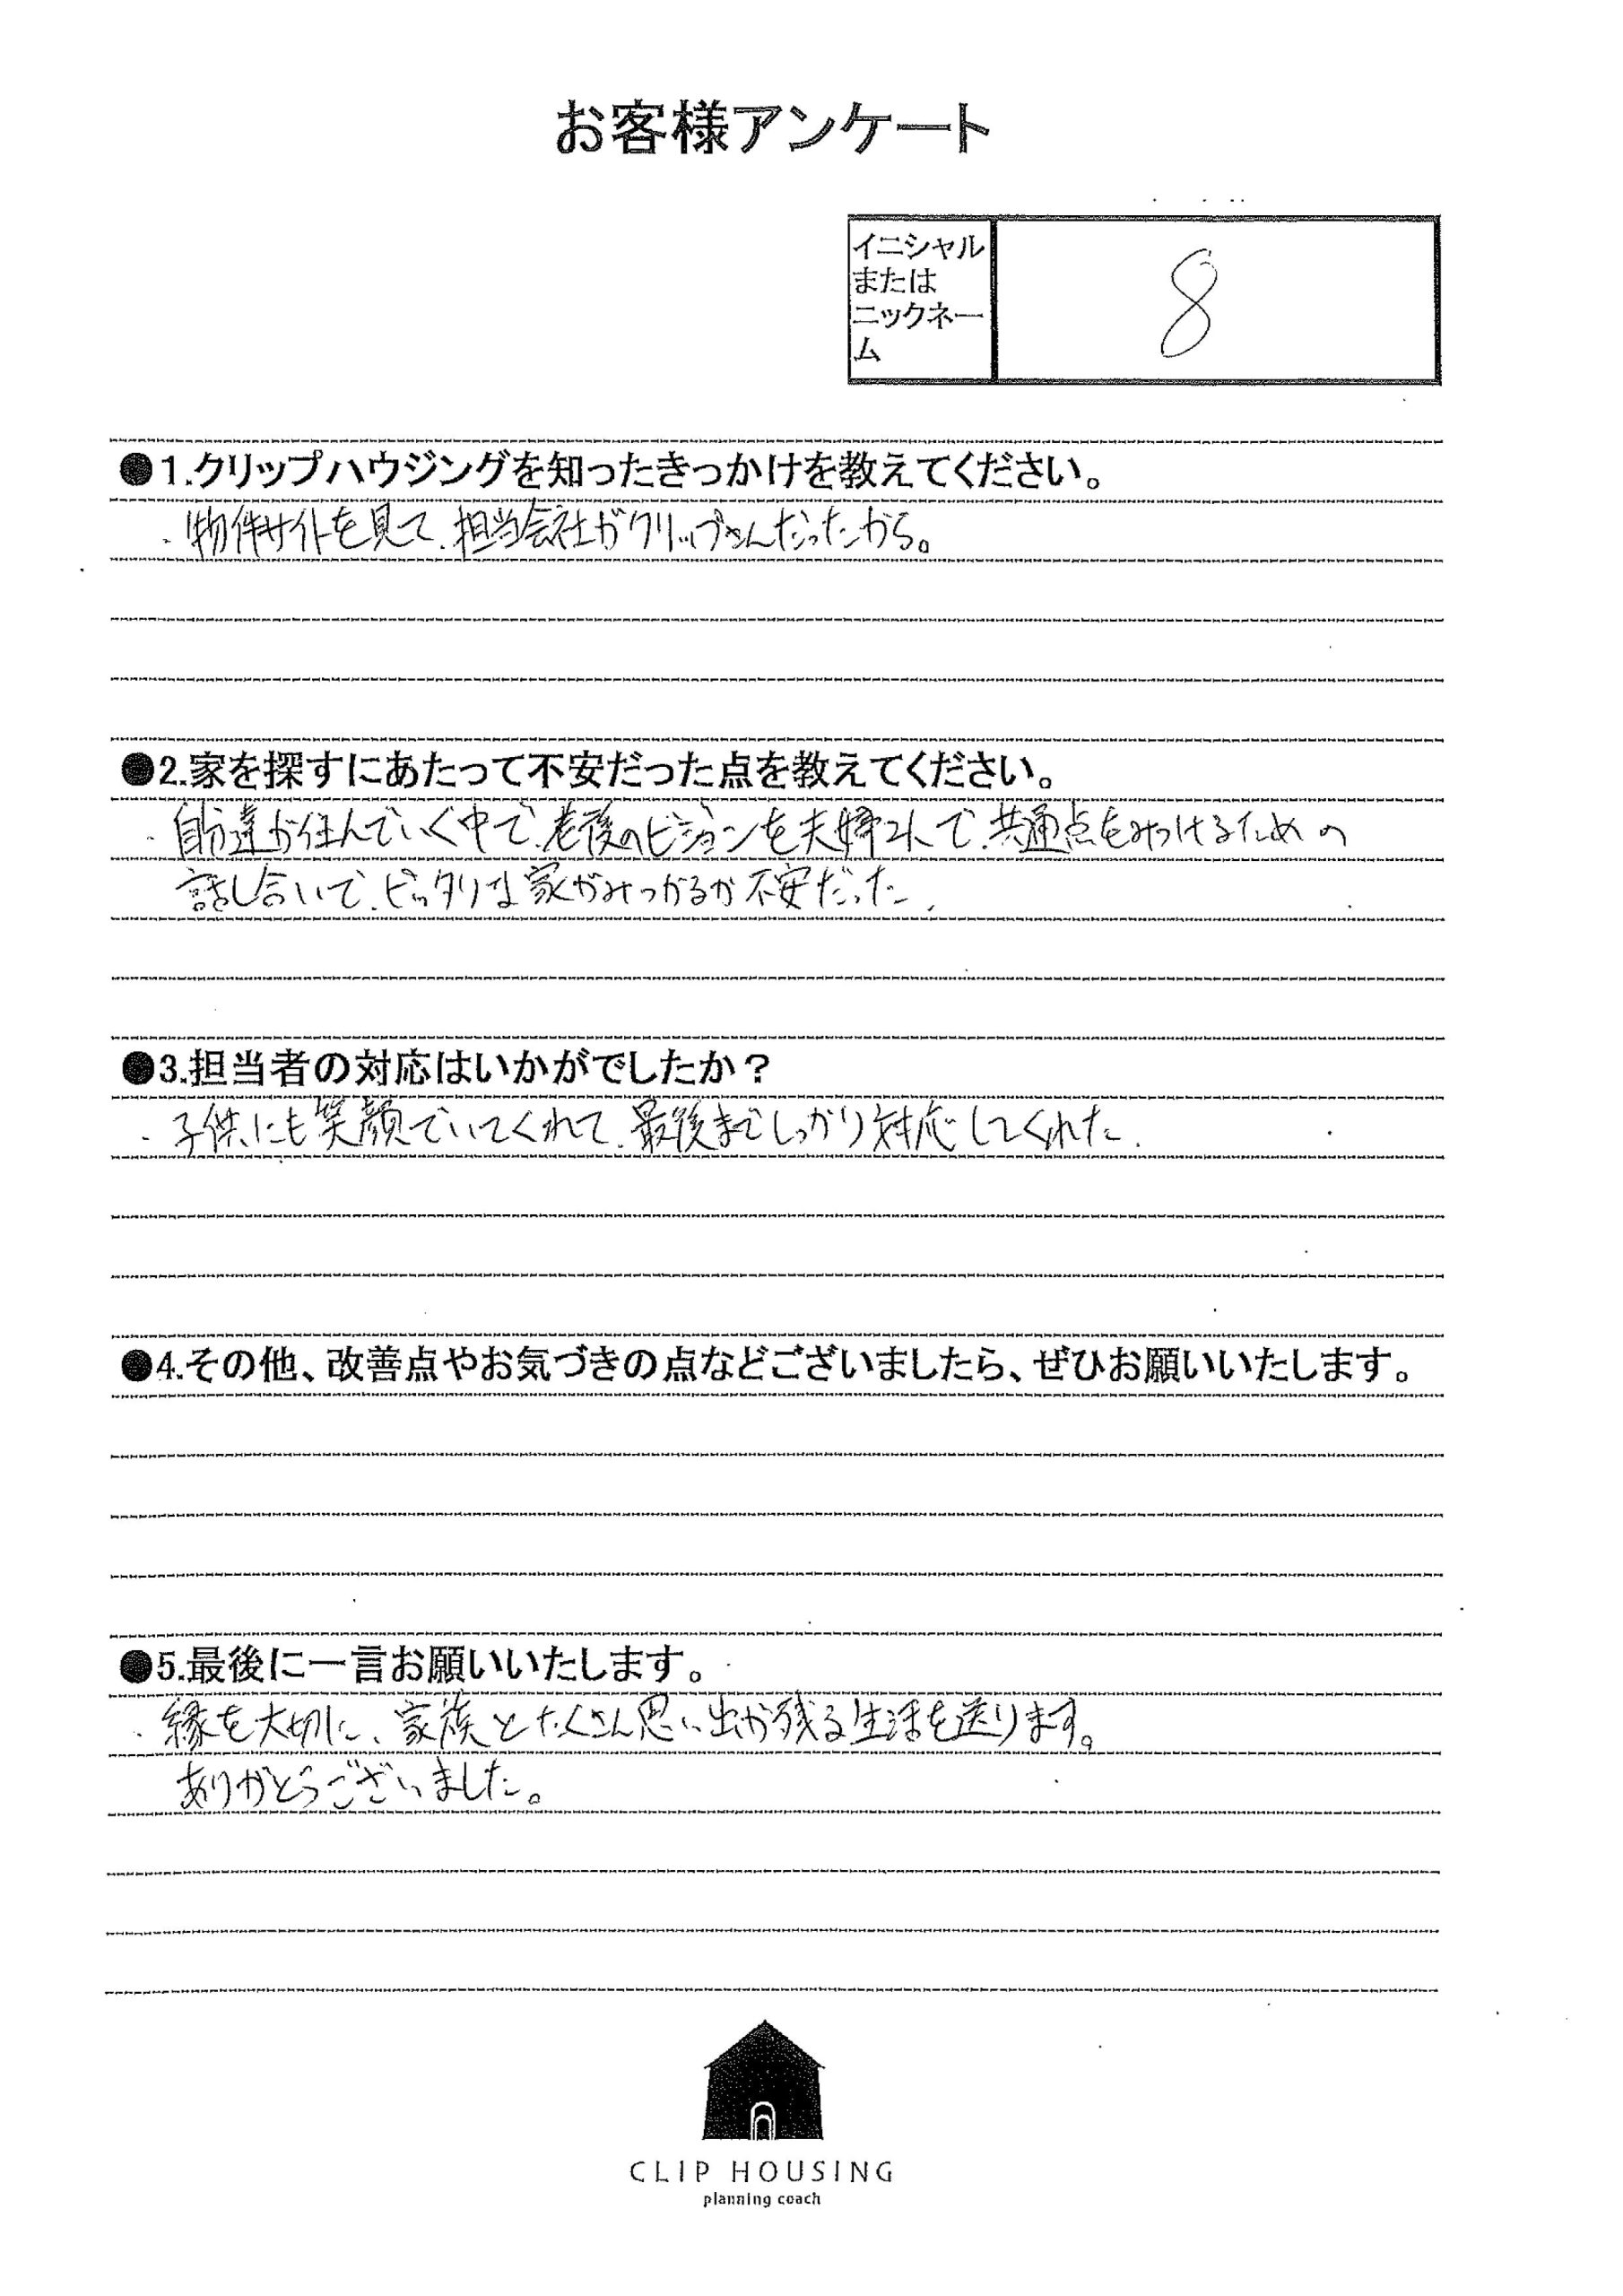 お客様アンケート
イニシャル
または
ニックネー
ム
8
●1.クリップハウジングを知ったきっかけを教えてください。
・物件サイトを見て、担当会社がクリップさんだったから。
●2.家を探すにあたって不安だった点を教えてください。
・自分達が住んでいく中で、老後のビジョンを夫婦2人で、共通点をみつけるための
話し合いで、ピッタリな家がみつかるか不安だった、
●3.担当者の対応はいかがでしたか？
・子供にも笑顔でいてくれて、最後までしっかり対応してくれた、
●4.その他、改善点やお気づきの点などございましたら、ぜひお願いいたします。
●5.最後に一言お願いいたします。
・縁を大切に、家族とたくさん思い出が残る生活を送ります。
ありがとうございました。
CLIP HOUSING
planning coach